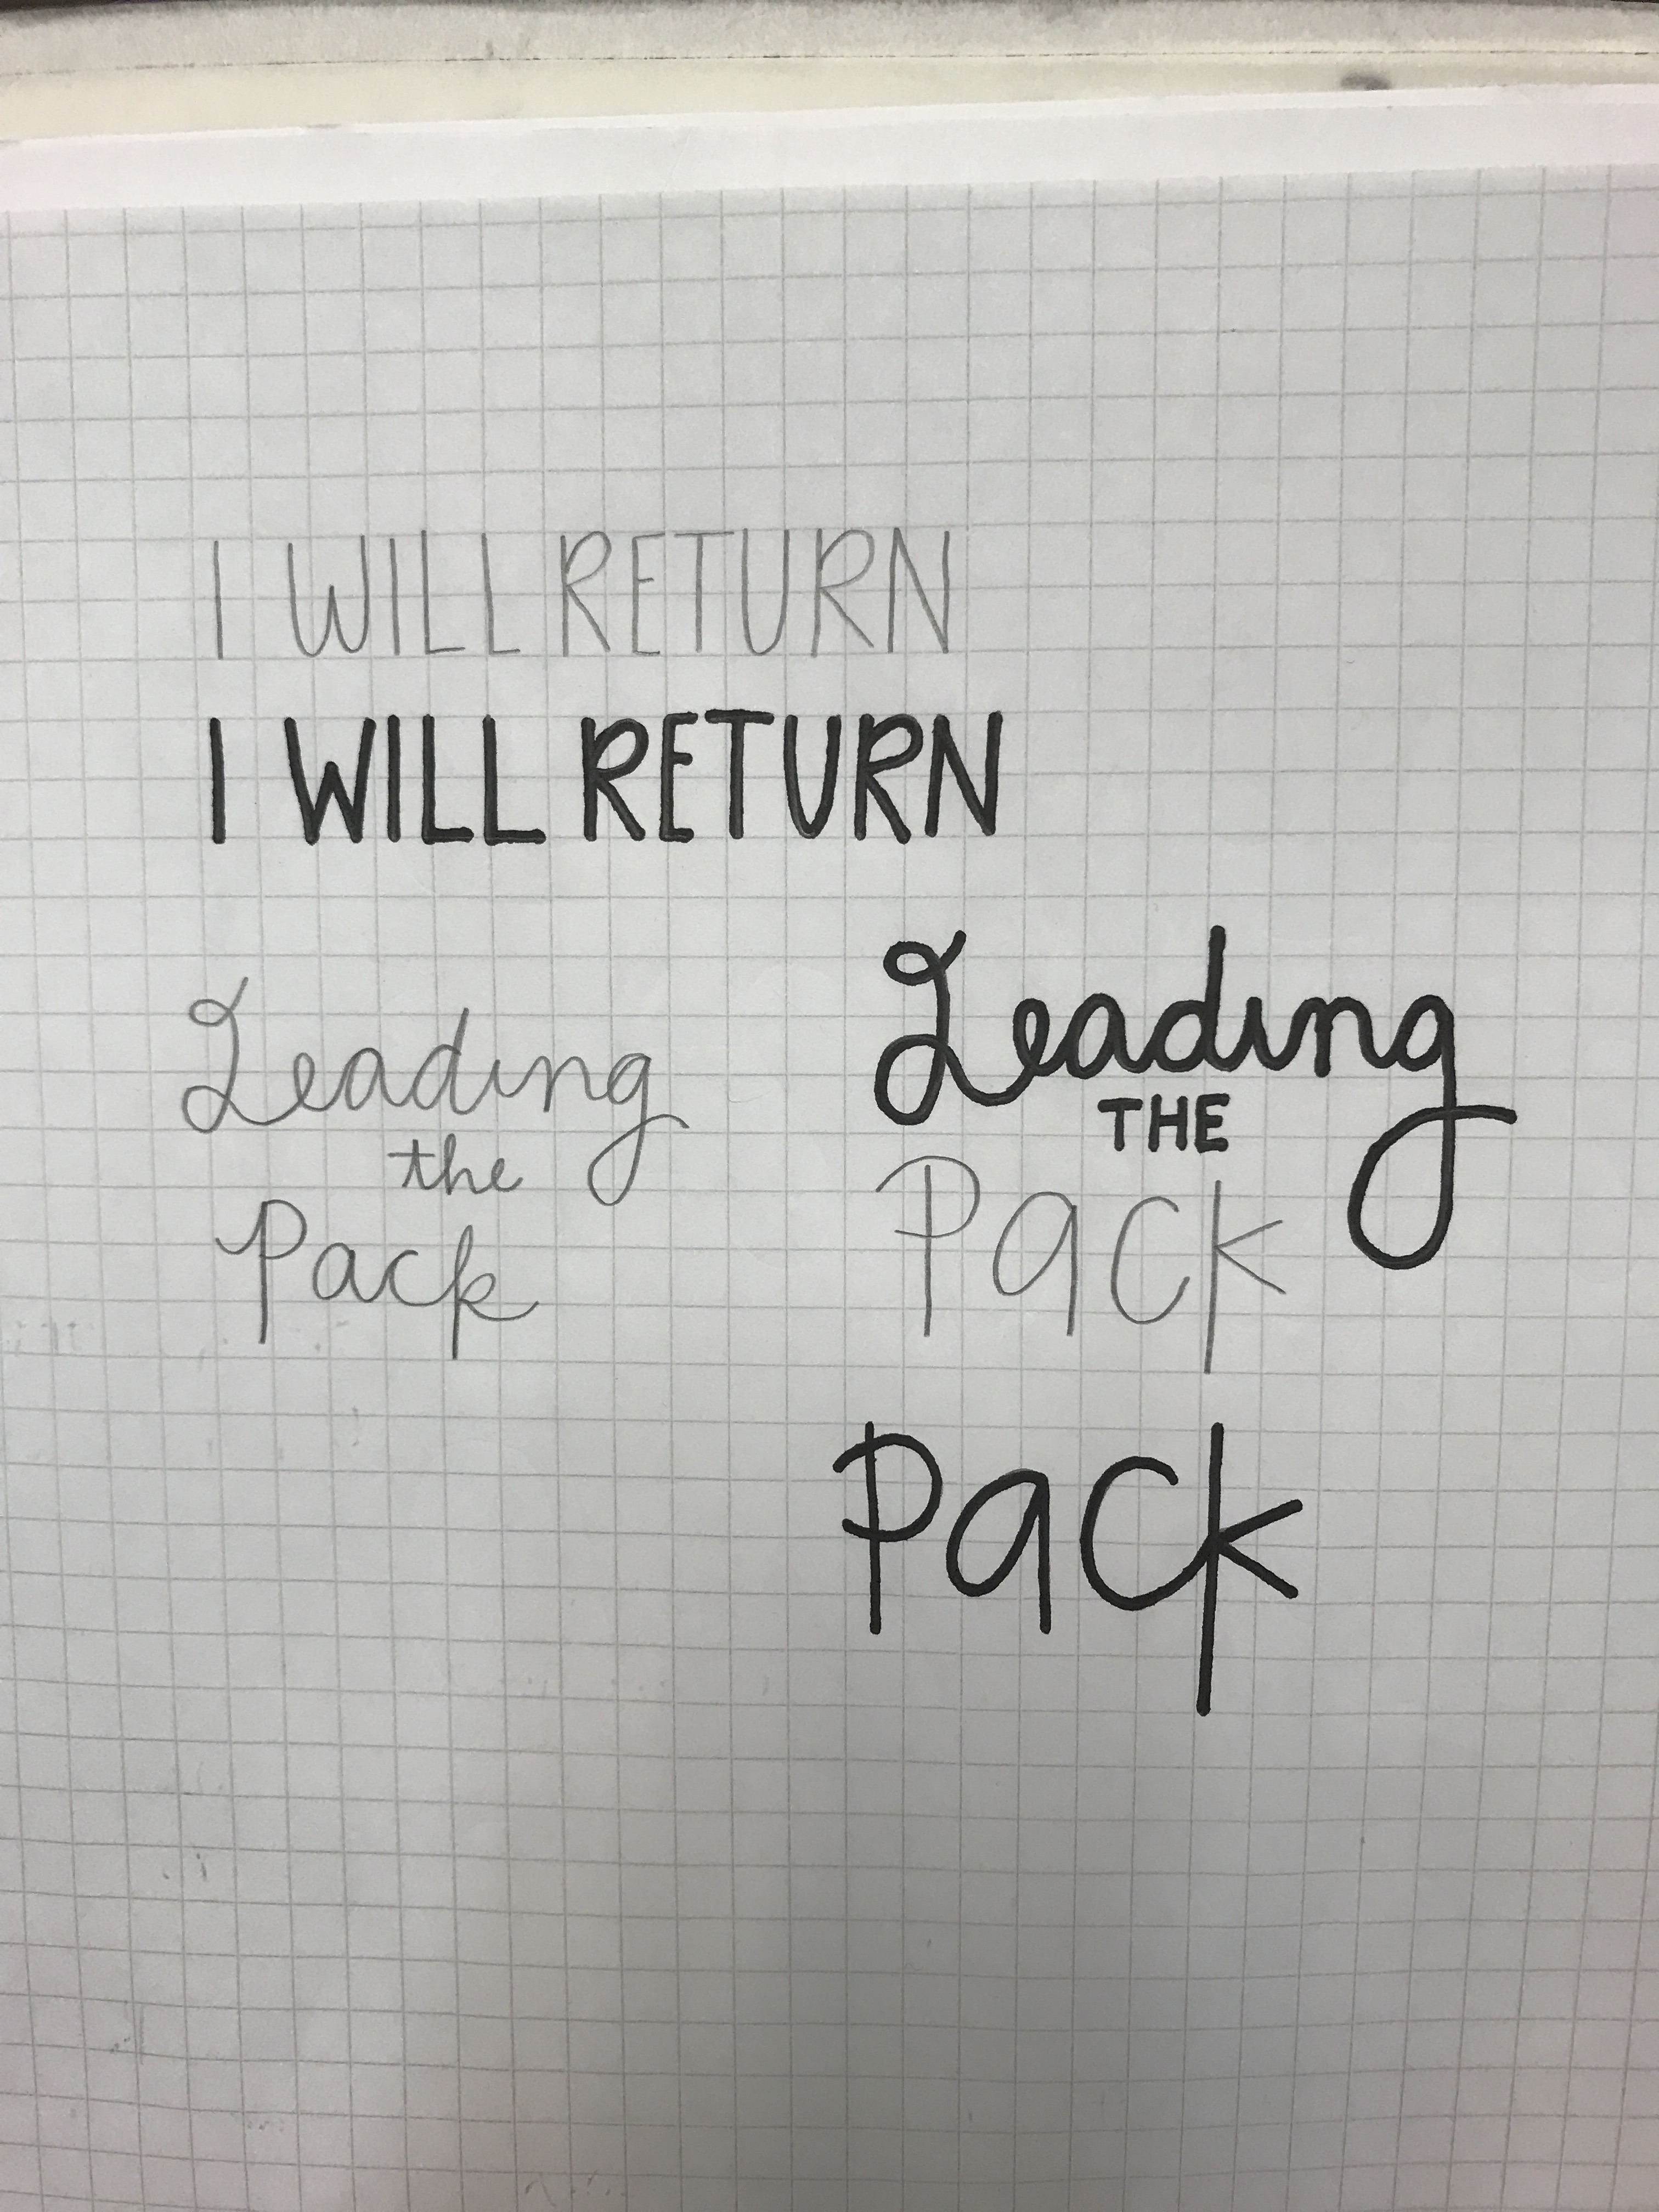 I WILL RETURN
I WILL RETURN
Leading
the
Pack
Leading
THE
Pack
Pack